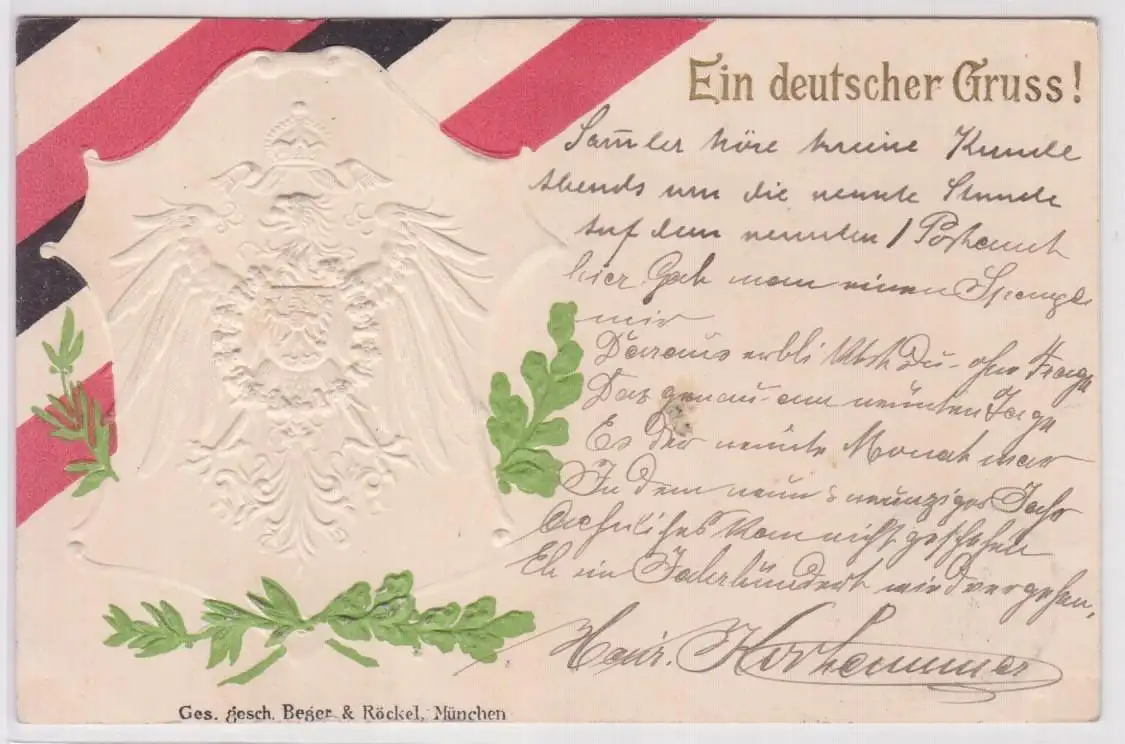 Ein deutscher Gruss!
Sam̄ler höre meine Kunde
Abends um die neunte Stunde
Auf dem neunten / Postamt
hier Gab man einen Stempel
mir
Daraus erblickst Du ohne Frage
Das genau am neunten Tage
Es der neunte Monat war
In dem neun & neunziger Jahr
Aehnliches kan nicht geschehen
Eh ein Jahrhundert wird vergehen,
Heinr.
Ges. gesch. Beger & Röckel, München